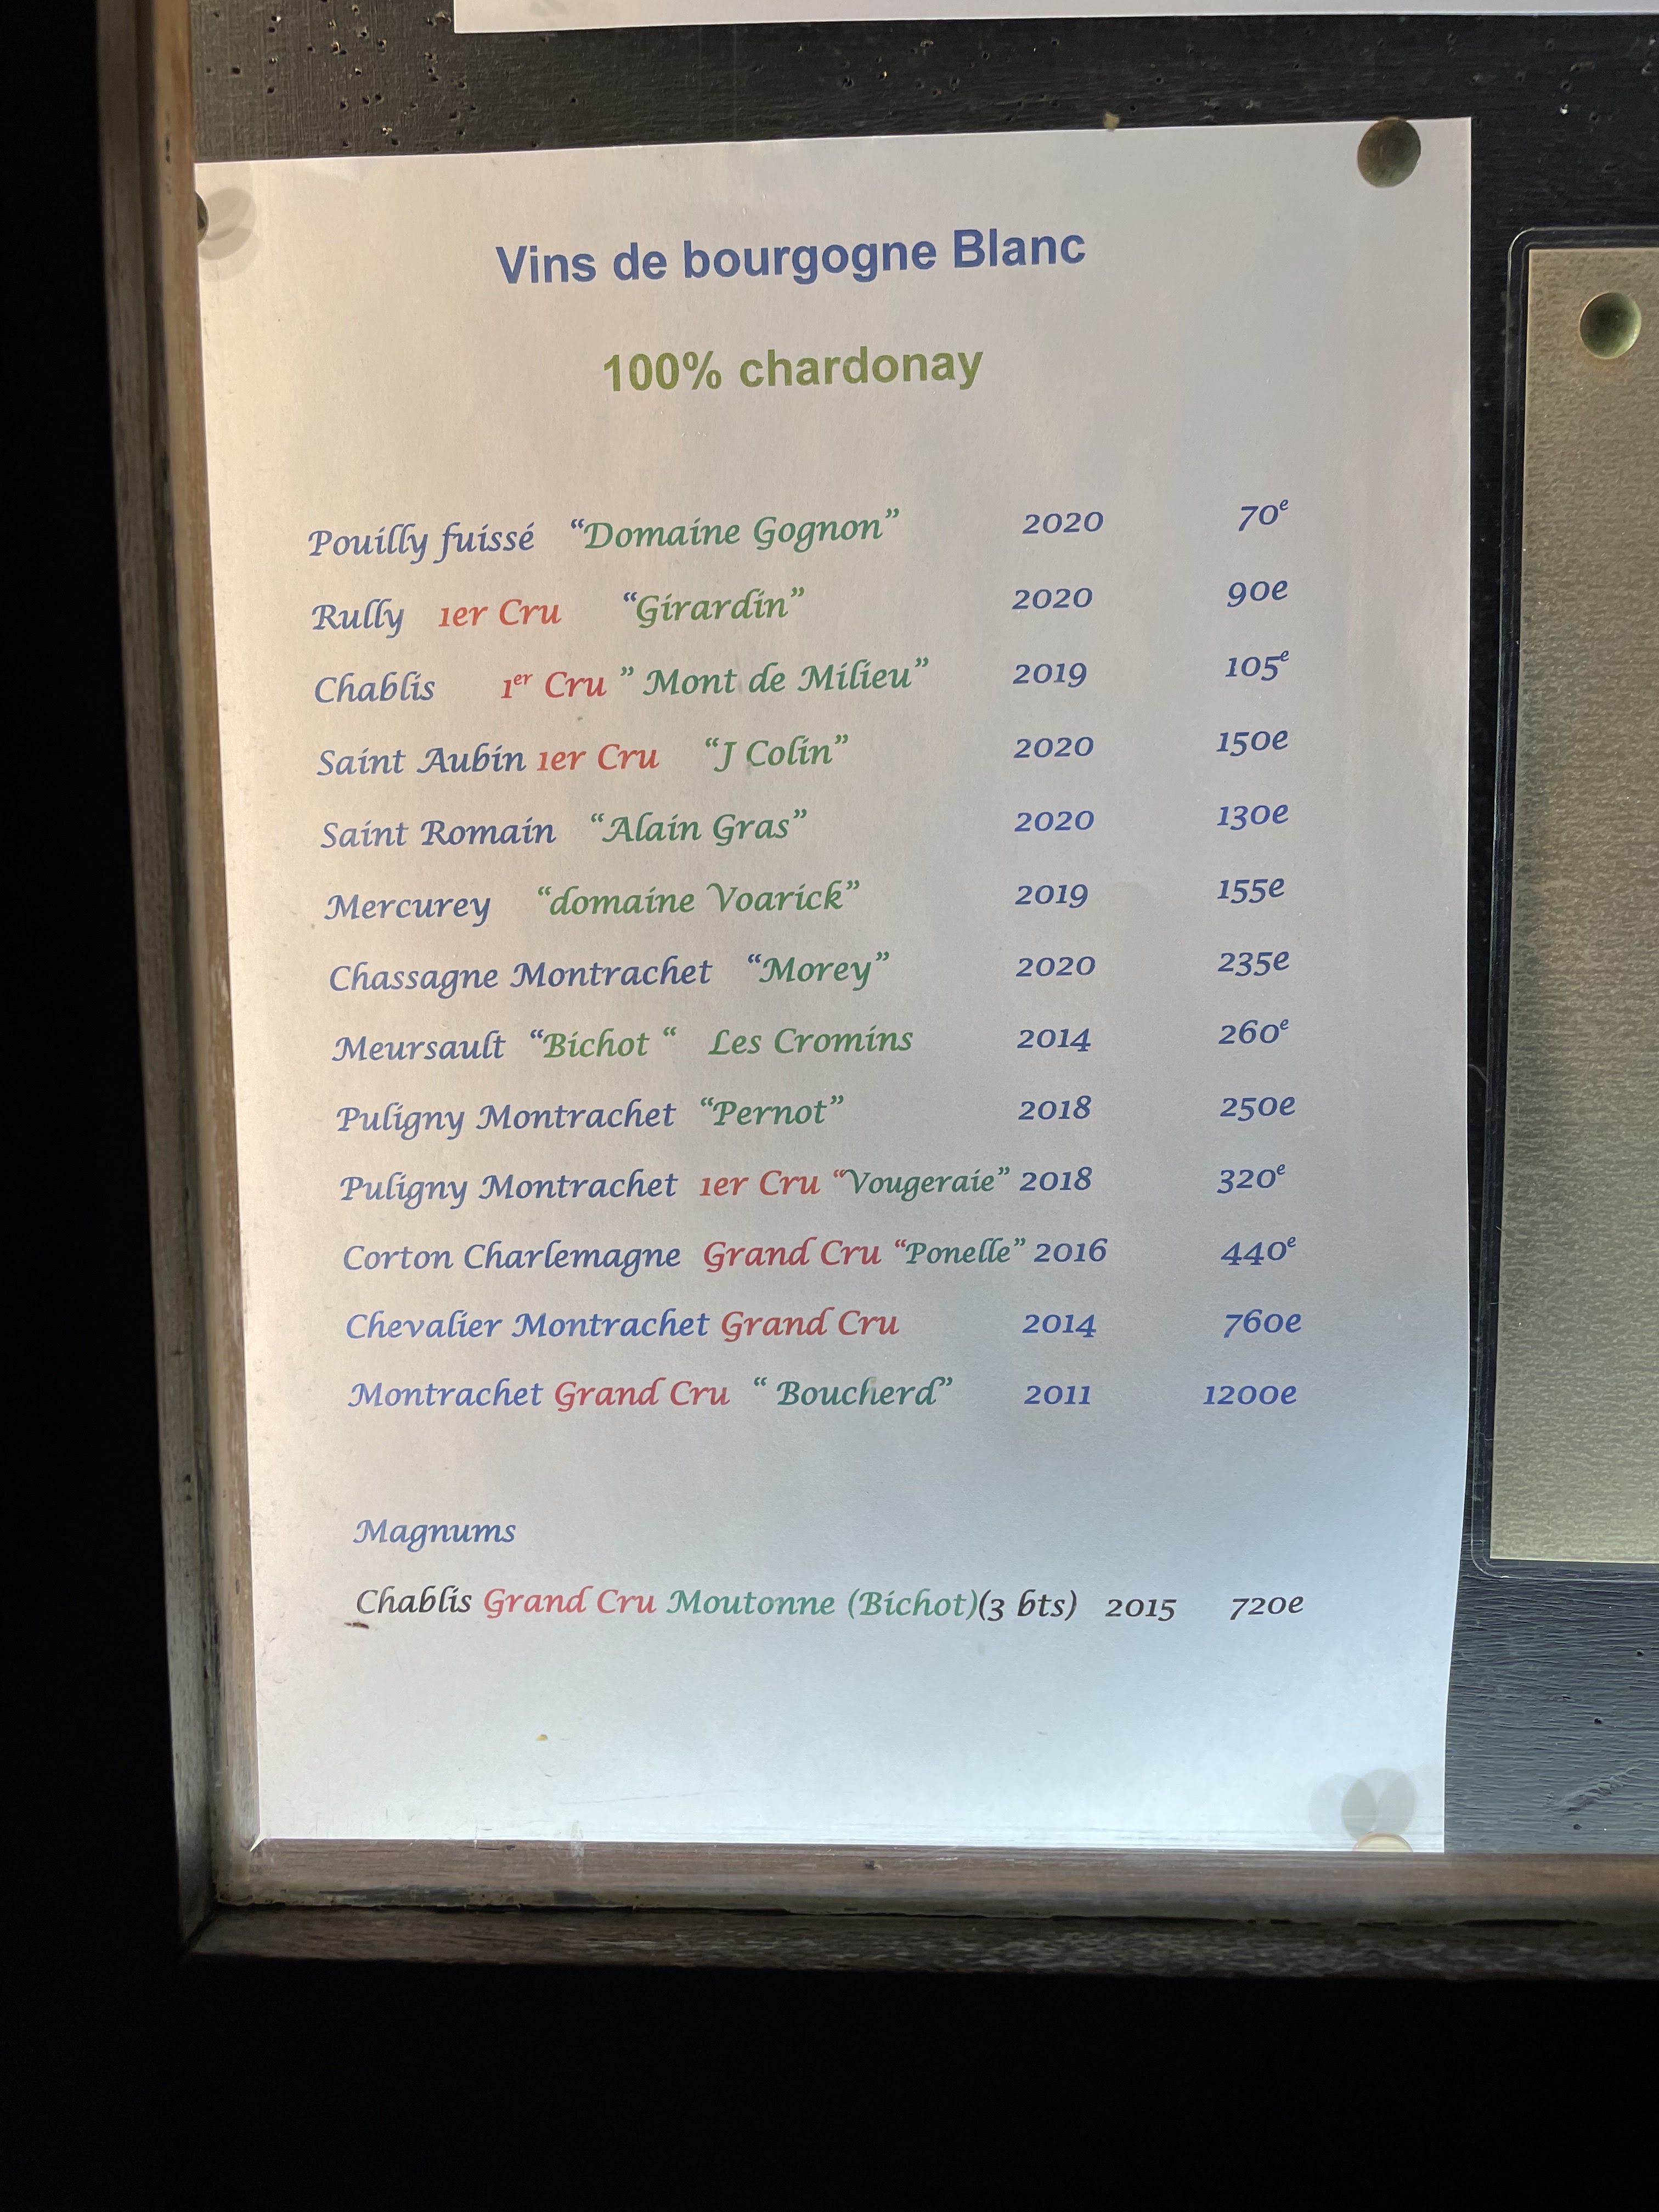 Vins de bourgogne Blanc
100% chardonay
Pouilly fuissé “Domaine Gognon” 2020 70e
Rully 1er Cru “Girardin” 2020 90e
Chablis 1er Cru ” Mont de Milieu” 2019 105e
Saint Aubin 1er Cru “J Colin” 2020 150e
Saint Romain “Alain Gras” 2020 130e
Mercurey “domaine Voarick” 2019 155e
Chassagne Montrachet “Morey” 2020 235e
Meursault “Bichot “ Les Cromins 2014 260e
Puligny Montrachet “Pernot” 2018 250e
Puligny Montrachet 1er Cru “Vougeraie” 2018 320e
Corton Charlemagne Grand Cru “Ponelle” 2016 440e
Chevalier Montrachet Grand Cru 2014 760e
Montrachet Grand Cru “ Boucherd” 2011 1200e
Magnums
Chablis Grand Cru Moutonne (Bichot)(3 bts) 2015 720e